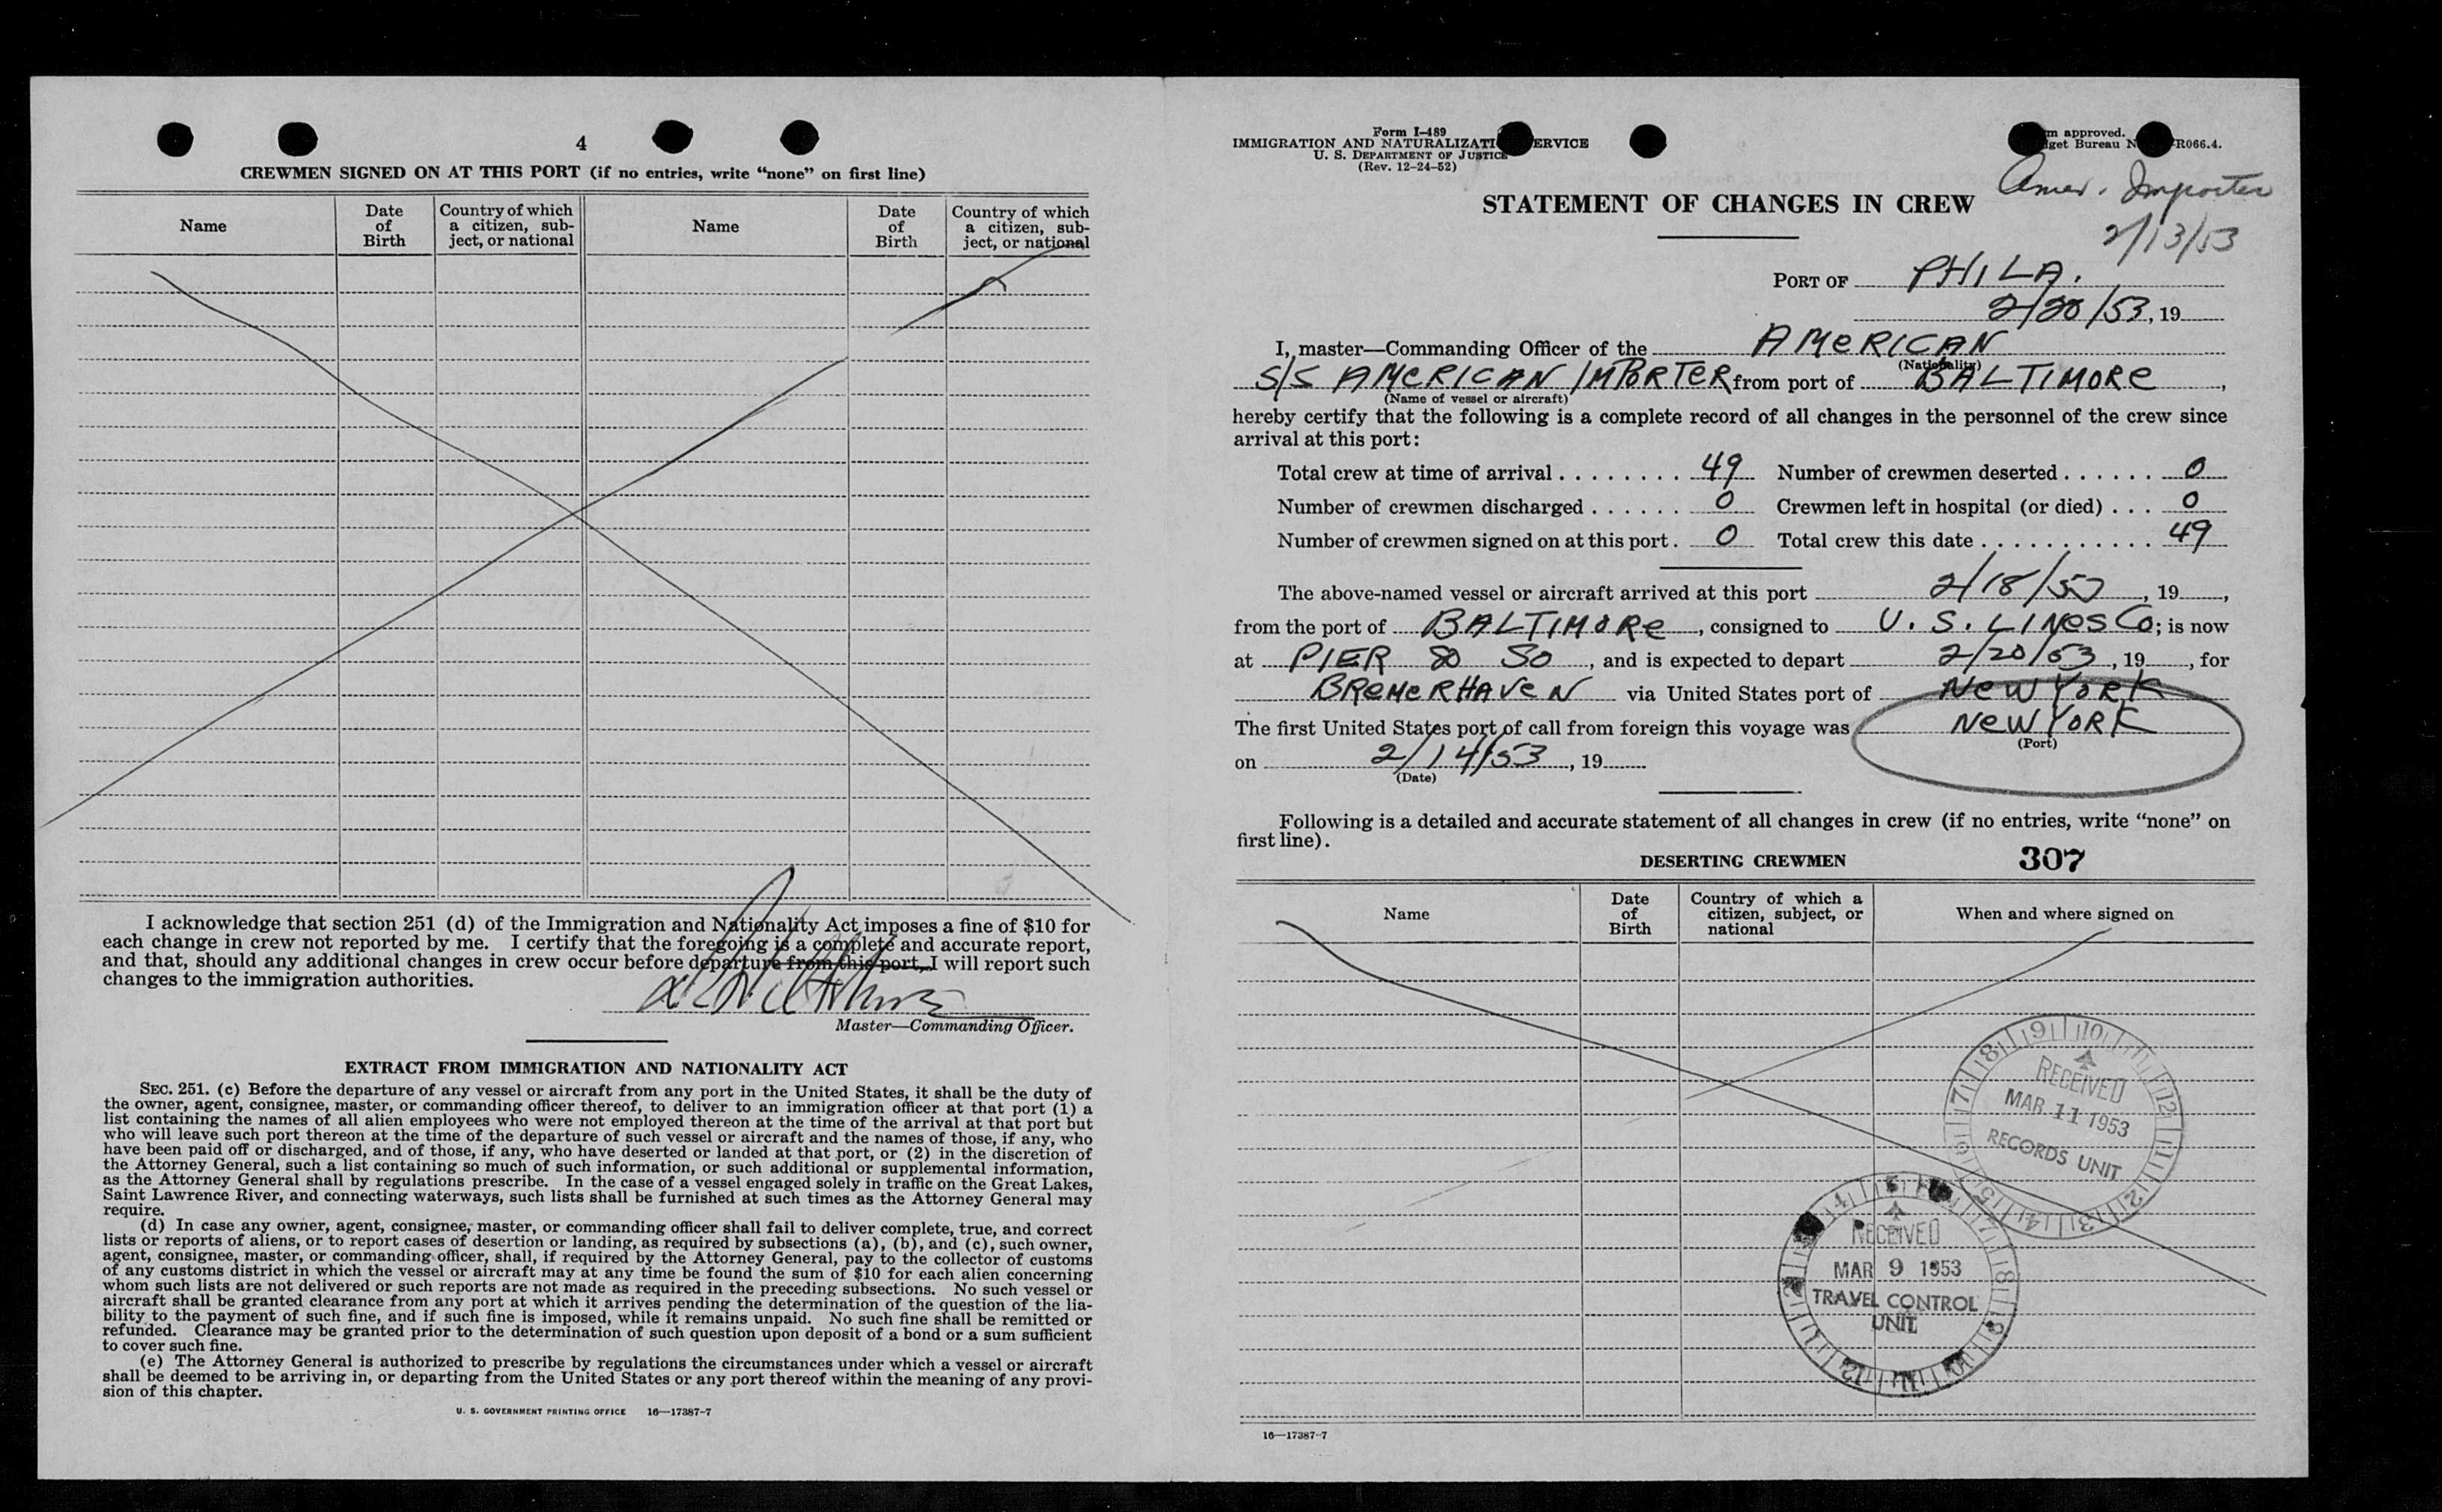 4
CREWMEN SIGNED ON AT THIS PORT (if no entries, write “none” on first line)
Name
Date of Birth
Country of which a citizen, sub-ject, or national
Name
Date of Birth
Country of which a citizen, sub-ject, or national
I acknowledge that section 251 (d) of the Immigration and Nationality Act imposes a fine of $10 for
each change in crew not reported by me. I certify that the foregoing is a complete and accurate report,
and that, should any additional changes in crew occur before departure from this port, I will report such
changes to the immigration authorities.
Master—Commanding Officer.
EXTRACT FROM IMMIGRATION AND NATIONALITY ACT
SEC. 251. (c) Before the departure of any vessel or aircraft from any port in the United States, it shall be the duty of
the owner, agent, consignee, master, or commanding officer thereof, to deliver to an immigration officer at that port (1) a
list containing the names of all alien employees who were not employed thereon at the time of the arrival at that port but
who will leave such port thereon at the time of the departure of such vessel or aircraft and the names of those, if any, who
have been paid off or discharged, and of those, if any, who have deserted or landed at that port, or (2) in the discretion of
the Attorney General, such a list containing so much of such information, or such additional or supplemental information,
as the Attorney General shall by regulations prescribe. In the case of a vessel engaged solely in traffic on the Great Lakes,
Saint Lawrence River, and connecting waterways, such lists shall be furnished at such times as the Attorney General may
require.
(d) In case any owner, agent, consignee, master, or commanding officer shall fail to deliver complete, true, and correct
lists or reports of aliens, or to report cases of desertion or landing, as required by subsections (a), (b), and (c), such owner,
agent, consignee, master, or commanding officer, shall, if required by the Attorney General, pay to the collector of customs
of any customs district in which the vessel or aircraft may at any time be found the sum of $10 for each alien concerning
whom such lists are not delivered or such reports are not made as required in the preceding subsections. No such vessel or
aircraft shall be granted clearance from any port at which it arrives pending the determination of the question of the lia-
bility to the payment of such fine, and if such fine is imposed, while it remains unpaid. No such fine shall be remitted or
refunded. Clearance may be granted prior to the determination of such question upon deposit of a bond or a sum sufficient
to cover such fine.
(e) The Attorney General is authorized to prescribe by regulations the circumstances under which a vessel or aircraft
shall be deemed to be arriving in, or departing from the United States or any port thereof within the meaning of any provi-
sion of this chapter.
U. S. GOVERNMENT PRINTING OFFICE 16—17387-7
Form I-489
IMMIGRATION AND NATURALIZATI ERVICE
U. S. DEPARTMENT OF JUSTICE
(Rev. 12-24-52)
m approved.
get Bureau N R066.4.
Amer. Importer
2/13/53
STATEMENT OF CHANGES IN CREW
PORT OF PHILA.
2/20/53, 19
I, master—Commanding Officer of the AMERICAN
(Nationality)
S/S AMERICAN IMPORTER from port of BALTIMORE,
(Name of vessel or aircraft)
hereby certify that the following is a complete record of all changes in the personnel of the crew since
arrival at this port:
Total crew at time of arrival . . . . . . . . 49 Number of crewmen deserted . . . . . . 0
Number of crewmen discharged . . . . . . 0 Crewmen left in hospital (or died) . . . 0
Number of crewmen signed on at this port . 0 Total crew this date . . . . . . . . . . . 49
The above-named vessel or aircraft arrived at this port 2/18/53, 19,
from the port of BALTIMORE, consigned to U. S. LINES Co; is now
at PIER 80 SO, and is expected to depart 2/20/53, 19, for
BREMERHAVEN via United States port of NEW YORK
The first United States port of call from foreign this voyage was NEW YORK
(Port)
on 2/14/53, 19
(Date)
Following is a detailed and accurate statement of all changes in crew (if no entries, write “none” on
first line).
DESERTING CREWMEN
307
Name
Date of Birth
Country of which a citizen, subject, or national
When and where signed on
RECEIVED
MAR 11 1953
RECORDS UNIT
RECEIVED
MAR 9 1953
TRAVEL CONTROL
UNIT
16—17387-7